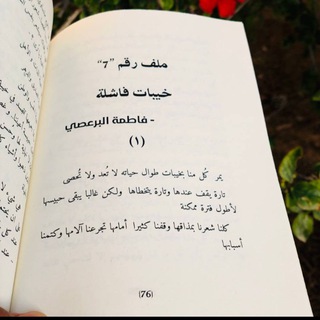 ملف رقم "7"
خيبات فاشلة
- فاطمة البرعصي
(١)
يمر كُل منا بخيبات طوال حياته لا تُعد ولا تُحصى
تارة يقف عندها وتارة يتخطاها ولكن غالبا يبقى حبيسها
لأطول فترة ممكنة
كلنا شعرنا بمذاقها وقفنا كثيرا أمامها تجرعنا آلامها وكتمنا
أسبابها
(76)